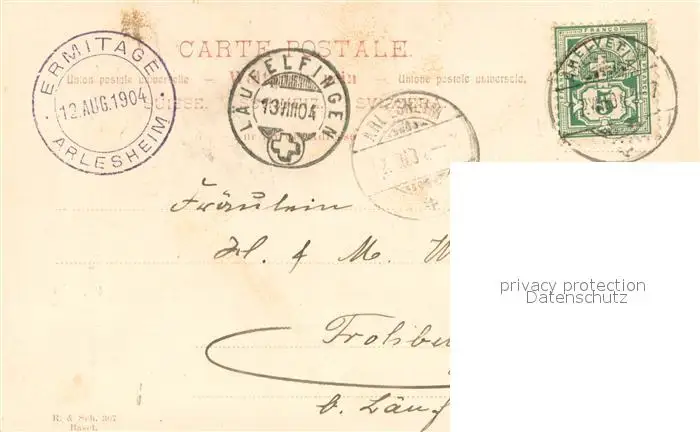 CARTE POSTALE.
Union postale universelle. — Weltpostverein — Unione postale universale.
SUISSE. SCHWEIZ. SVIZZERA.
ERMITAGE
12. AUG. 1904
ARLESHEIM
LÄUFELFINGEN
13 VIII 04
ARLESHEIM
HELVETIA
FRANCO
5
Fräulein
H. & M. W
Froh
b. Läuf
privacy protection
Datenschutz
R. & Sch. 307
Basel.